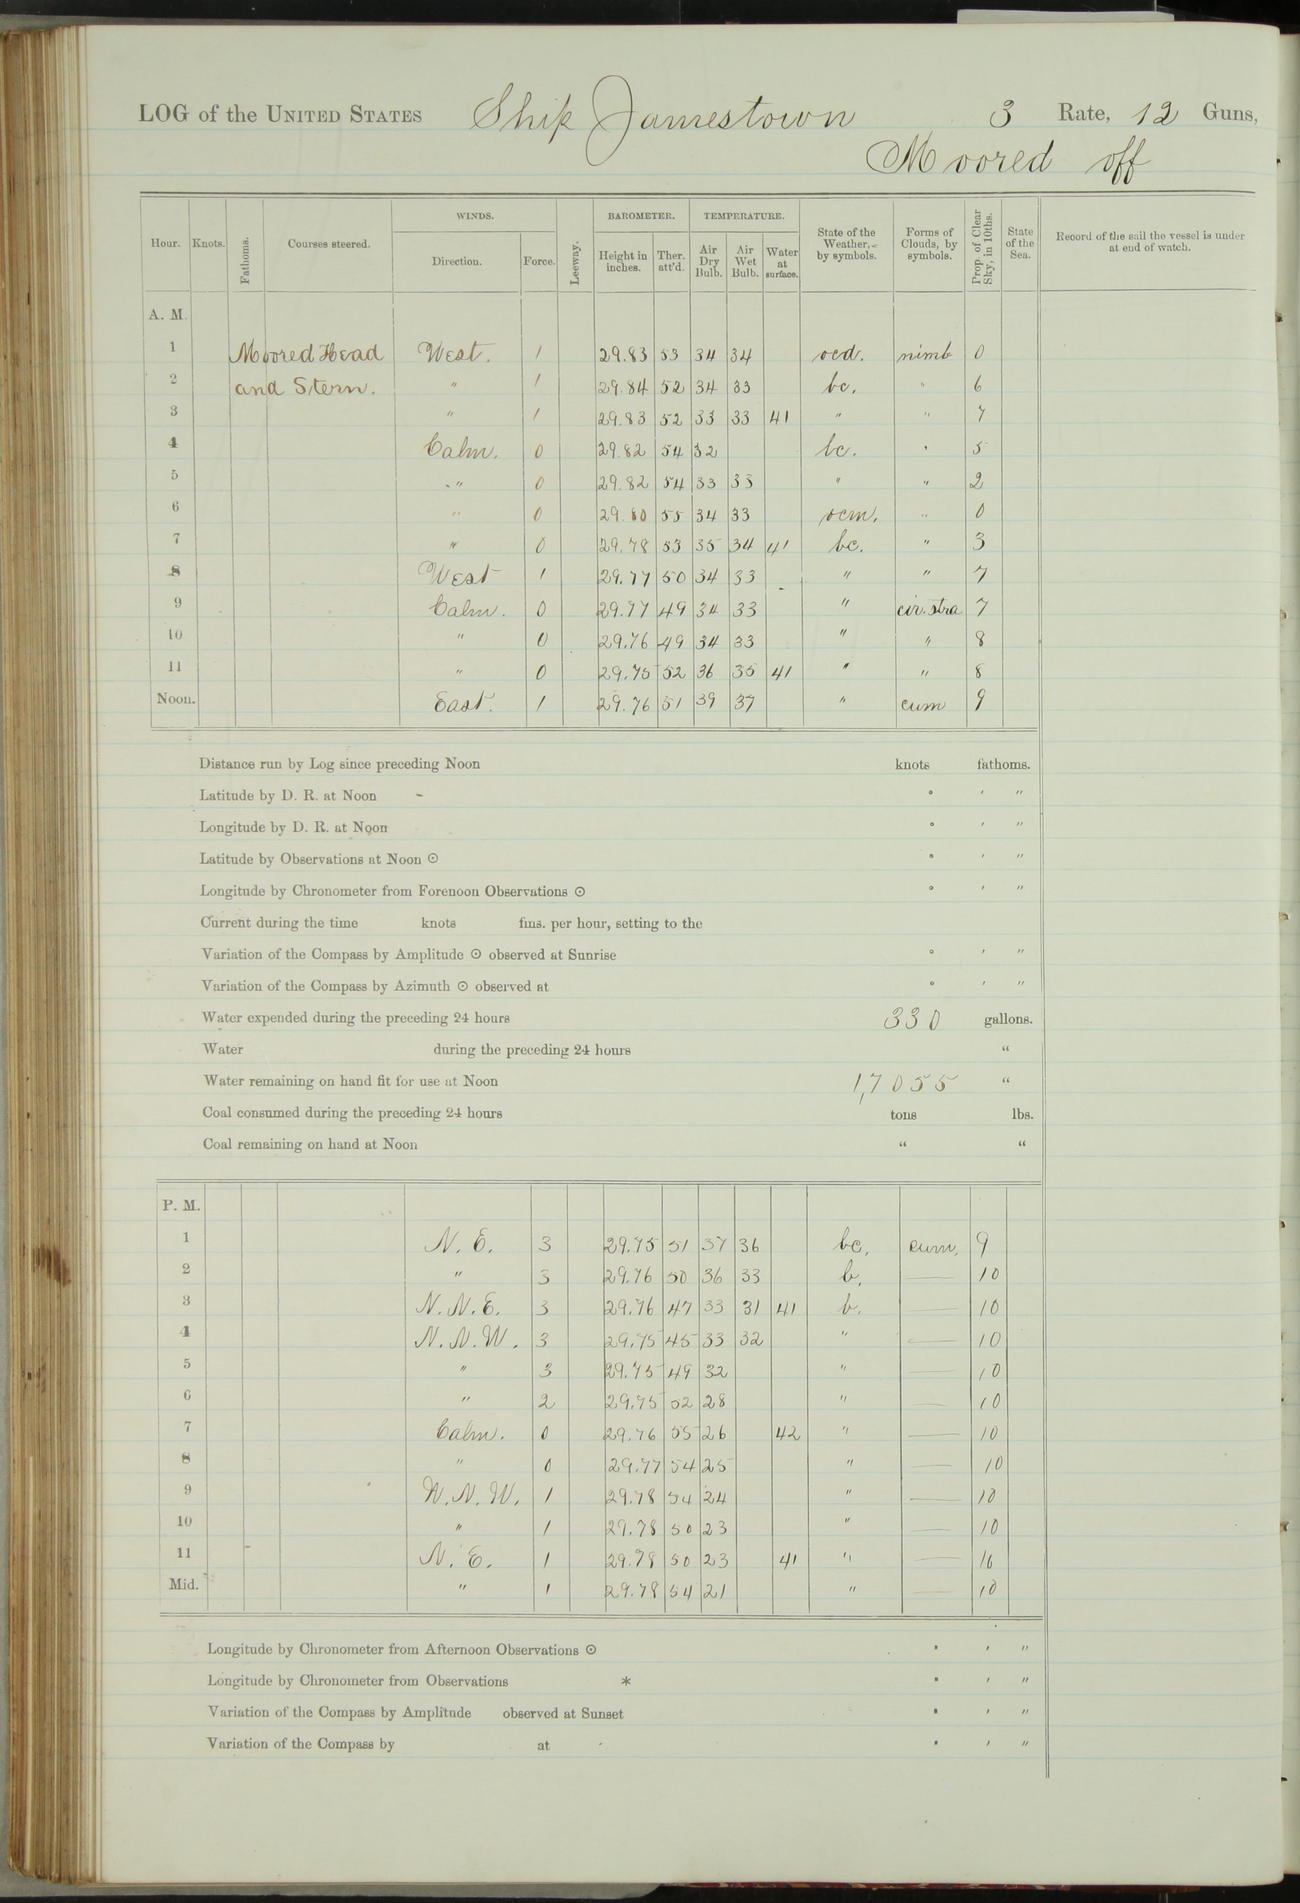 LOG of the UNITED STATES Ship Jamestown 3 Rate, 12 Guns,
Moored off
Hour. Knots. Fathoms. Courses steered. WINDS. Direction. Force. Leeway. BAROMETER. Height in inches. Ther. att'd. TEMPERATURE. Air Dry Bulb. Air Wet Bulb. Water at surface. State of the Weather, by symbols. Forms of Clouds, by symbols. Prop. of Clear Sky, in 10ths. State of the Sea. Record of the sail the vessel is under at end of watch.
A. M.
1 Moored Head West. 1 29.83 53 34 34 ocd. nimb 0
2 and Stern. " 1 29.84 52 34 33 bc. " 6
3 " 1 29.83 52 33 33 41 " " 7
4 Calm. 0 29.82 54 32 bc. " 5
5 " 0 29.82 54 33 33 " " 2
6 " 0 29.80 55 34 33 ocm. " 0
7 " 0 29.78 53 35 34 41 bc. " 3
8 West 1 29.77 50 34 33 " " 7
9 Calm. 0 29.77 49 34 33 " cir.stra 7
10 " 0 29.76 49 34 33 " " 8
11 " 0 29.75 52 36 35 41 " " 8
Noon. East. 1 29.76 51 39 37 " cum 9
Distance run by Log since preceding Noon knots fathoms.
Latitude by D. R. at Noon ° ' "
Longitude by D. R. at Noon ° ' "
Latitude by Observations at Noon ⊙ ° ' "
Longitude by Chronometer from Forenoon Observations ⊙ ° ' "
Current during the time knots fms. per hour, setting to the
Variation of the Compass by Amplitude ⊙ observed at Sunrise ° ' "
Variation of the Compass by Azimuth ⊙ observed at ° ' "
Water expended during the preceding 24 hours 330 gallons.
Water during the preceding 24 hours "
Water remaining on hand fit for use at Noon 17,055 "
Coal consumed during the preceding 24 hours tons lbs.
Coal remaining on hand at Noon " "
P. M.
1 N. E. 3 29.75 51 37 36 bc. cum. 9
2 " 3 29.76 50 36 33 b. — 10
3 N. N. E. 3 29.76 47 33 31 41 b. — 10
4 N. N. W. 3 29.75 45 33 32 " — 10
5 " 3 29.75 49 32 " — 10
6 " 2 29.75 52 28 " — 10
7 Calm. 0 29.76 55 26 42 " — 10
8 " 0 29.77 54 25 " — 10
9 W. N. W. 1 29.78 54 24 " — 10
10 " 1 29.78 50 23 " — 10
11 N. E. 1 29.78 50 23 41 " — 10
Mid. " 1 29.78 54 21 " — 10
Longitude by Chronometer from Afternoon Observations ⊙ ° ' "
Longitude by Chronometer from Observations * ° ' "
Variation of the Compass by Amplitude observed at Sunset ° ' "
Variation of the Compass by at ° ' "